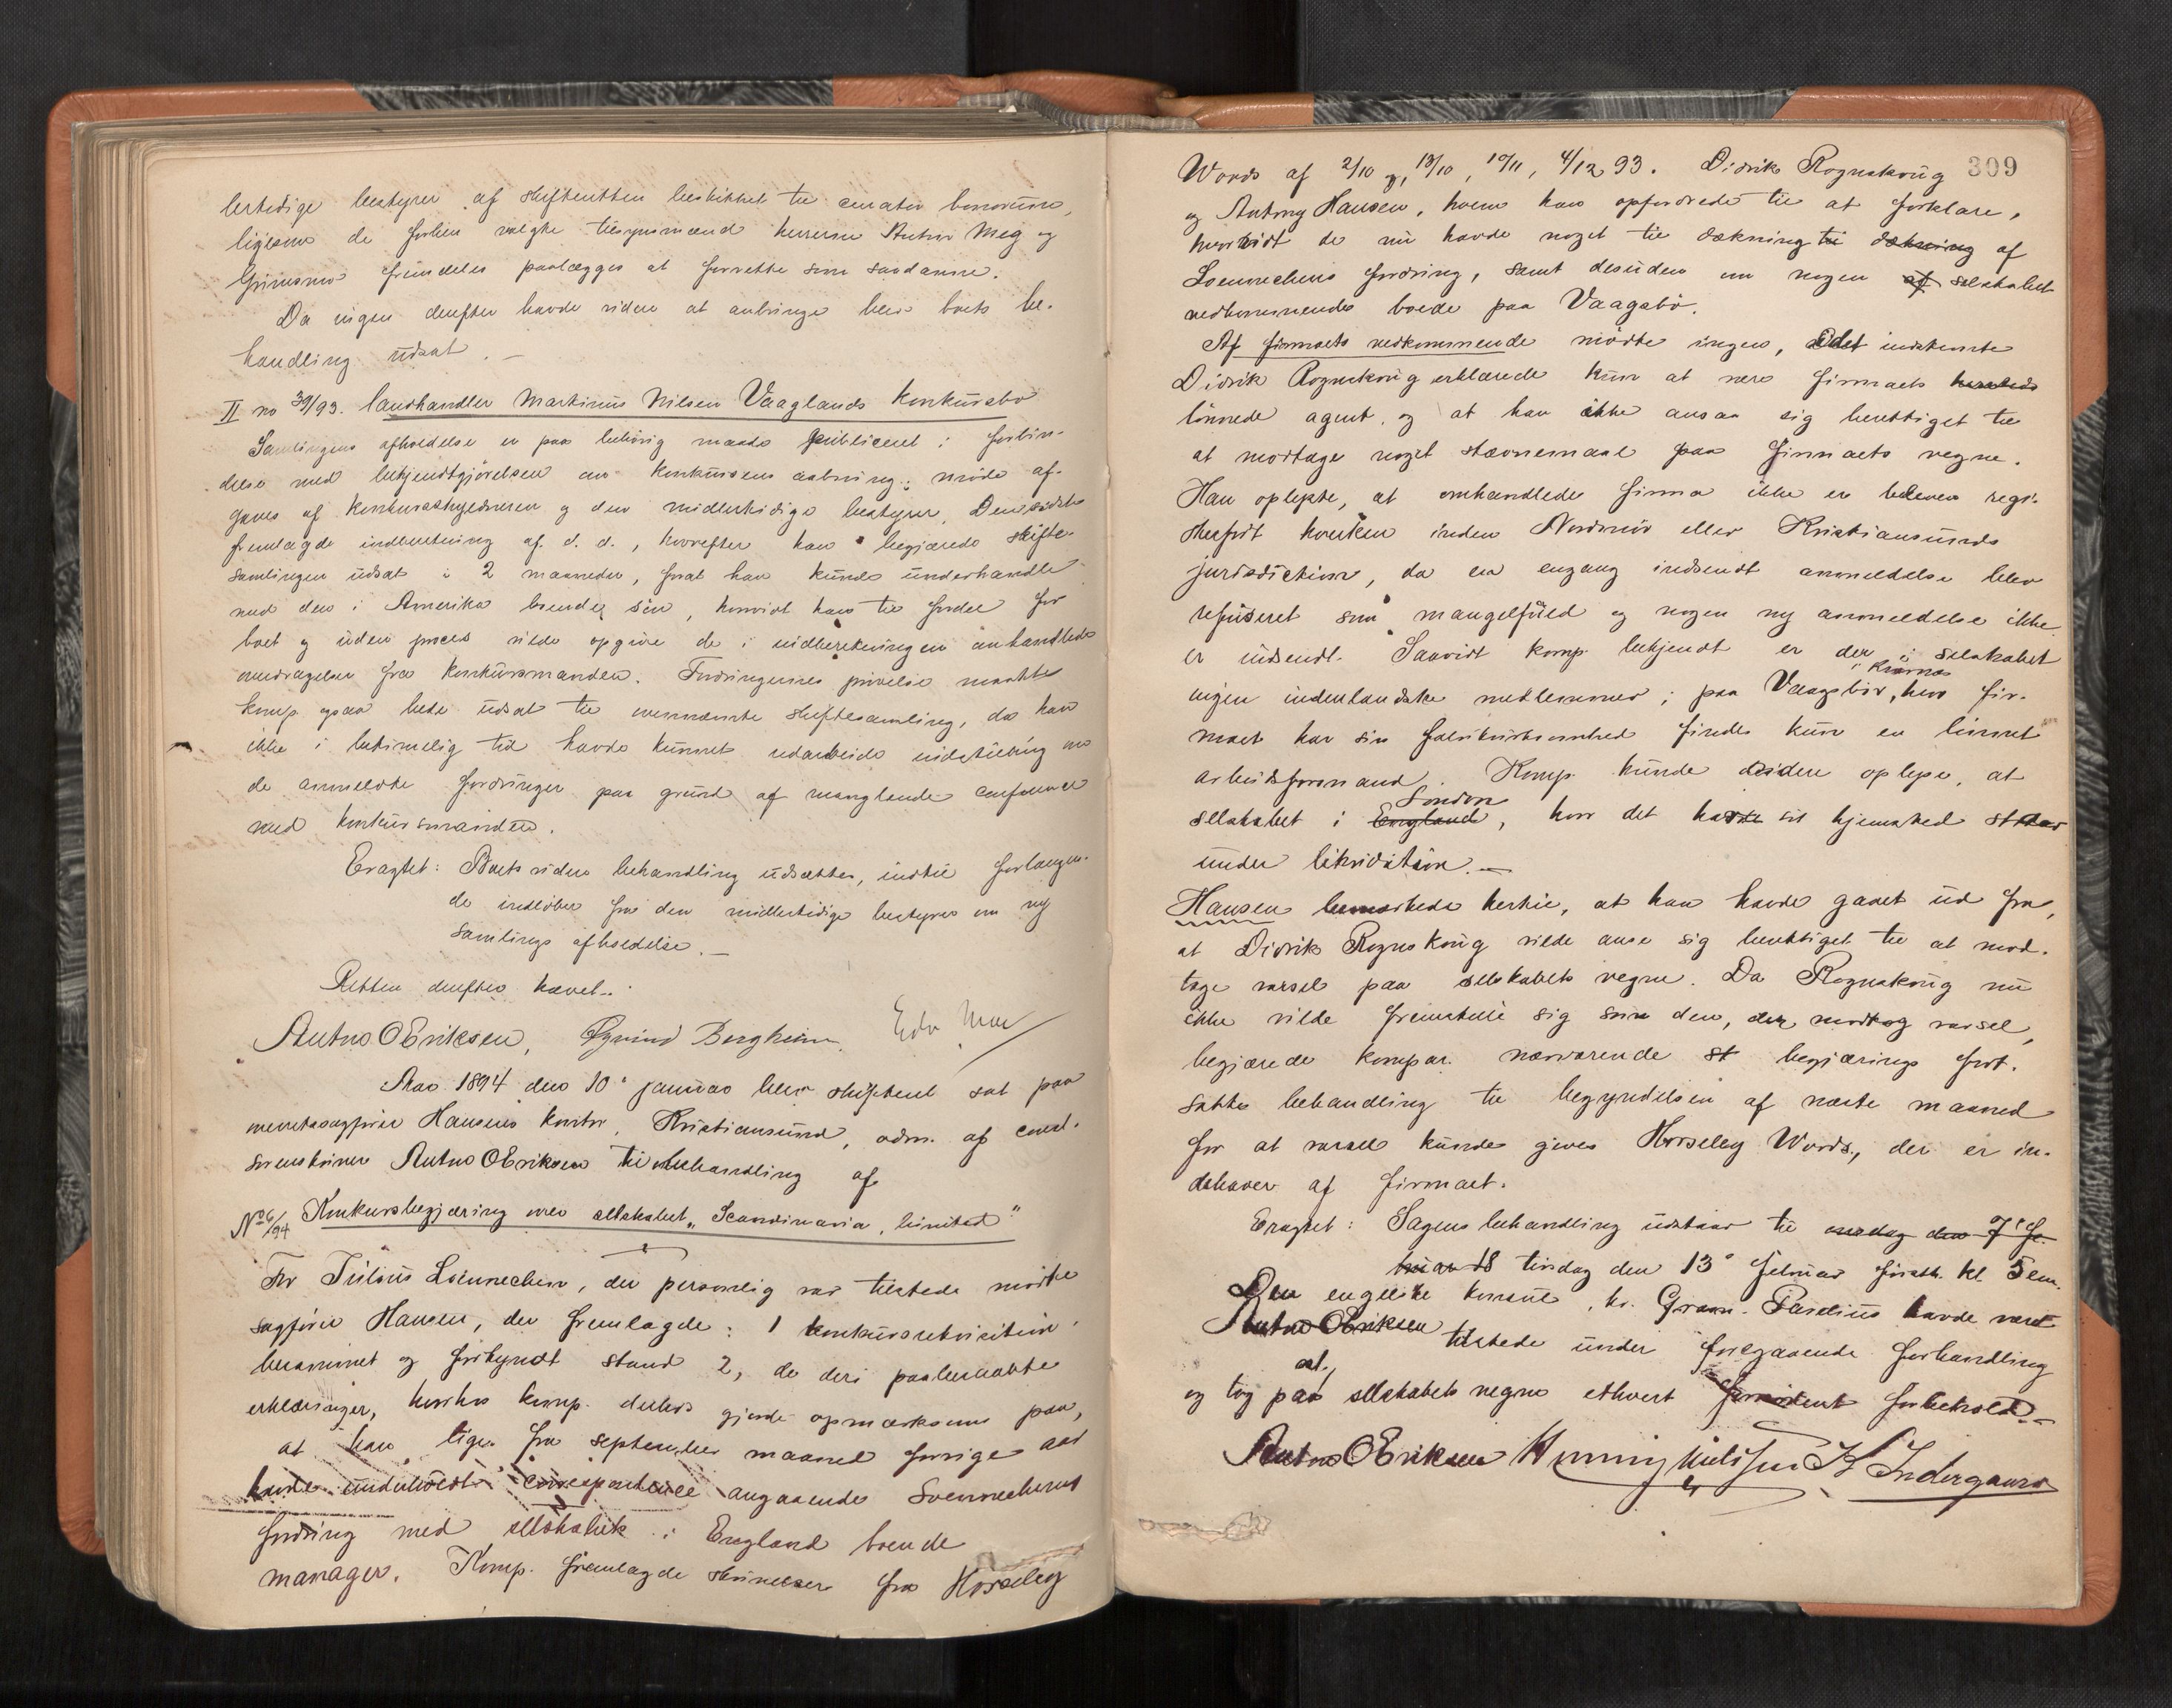 lertidige bestyrer af skifteretten beskikket til curator bonorum,
ligesom de forhen valgte tilsynsmænd herrerne Anton Meg og
Grimsmo fremdeles paalægges at forrette som saadanne.
Da ingen derefter havde videre at anbringe blev boets be-
handling udsat. –
II no 39/93. landhandler Martinus Nilsen Vaaglands konkursbo
Samlingens afholdelse er paa behørig maade publiceret i forbin-
delse med bekjendtgjørelsen om konkursens aabning; møde af-
gaves af konkursskyldneren og den midlertidige bestyrer. Den sidste
fremlagde indberetning af d. d., hvorefter han begjærede skifte-
samlingen udsat i 2 maaneder, forat han kunde underhandle
med den i Amerika boende søn, hvorvidt han til fordel for
boet og uden proces vilde opgive de i indberetningen omhandlede
overdragelser fra konkursmanden. Fordringernes prøvelse maatte
komp. ogsaa bede udsat til ovennævnte skiftesamling, da han
ikke i betimelig tid havde kunnet udarbeide indstilling om
de anmeldte fordringer paa grund af manglende conference
med konkursmanden.
Eragtet: Boets videre behandling udsættes, indtil forlangen-
de indløber fra den midlertidige bestyrer om ny
samlings afholdelse. –
Retten derefter hævet. –
Anton O Eriksen, Øyvind Bergheim. Edv Moe
Aar 1894 den 10' januar blev skifteret sat paa
overretssagfører Hansens kontor, Kristiansund, adm. af const.
sorenskriver Anton O Eriksen til behandling af
No 6/94 Konkursbegjæring over selskabet „Scandinavia, limited"
For Julius Loennechen, der personlig var tilstede mødte
sagfører Hansen, der fremlagde: 1 konkursrekvisition
berammet og forkyndt samt 2, de deri paaberaabte
erklæringer, hvorhos komp. derhos gjorde opmærksom paa,
at han lige fra september maaned forrige aar
havde underholdt correspondence angaaende Loennechens
fordring med selskabets i England boende
manager. Komp. fremlagde skrivelser fra Horseley
309
Words af 2/10 og, 13/10, 10/11, 4/12 93. Didrik Rognskoug
og Antony Hansen, hvem han opfordrede til at forklare,
hvorvidt de nu havde noget til dækning til dækning af
Loennechens fordring, samt desuden om nogen af selskabet
vedkommende boede paa Vaagsbø.
Af firmaets vedkommende mødte ingen, idet indstevnte
Didrik Rognskoug erklærede kun at være firmaets
lønnede agent, og at han ikke ansaa sig berettiget til
at modtage noget stævnemaal paa firmaets vegne.
Han oplyste, at omhandlede firma ikke er bleven regi-
streret hverken inden Nordmør eller Kristiansunds
jurisdiction, da en engang indsendt anmeldelse blev
refuseret som mangelfuld og nogen ny anmeldelse ikke
er indsendt. Saavidt komp. bekjendt er der i selskabet
ingen indenlandske medlemmer; paa Vaagsbø, i Kværnes hvor fir-
maet har sin fabrikvirksomhed findes kun en lønnet
arbeidsformand. Komp. kunde videre oplyse, at
selskabet i England London, hvor det havde sit hjemsted staar
under likvidation. –
Hansen bemærkede hertil, at han havde gaaet ud fra,
at Didrik Rognskoug vilde anse sig berettiget til at mod-
tage varsel paa selskabets vegne. Da Rognskoug nu
ikke vilde fremstille sig som den, der modtog varsel,
begjærede kompar. nærværende st begjærings fort-
satte behandling til begyndelsen af næste maaned
for at varsel kunde gives Horseley Words, der er in-
dehaver af firmaet.
Eragtet: Sagens behandling udstaar til onsdag den 7' fe-
bruar 18 tirsdag den 13' februar førstk. kl. 5 em.
Den engelske konsul, hr. Gram-Parelius havde været
Anton O Eriksen tilstede under foregaaende forhandling
og tog paa selskabets vegne ethvert fornødent forbehold. –
Anton O Eriksen Henning Nielssen K Indergaard